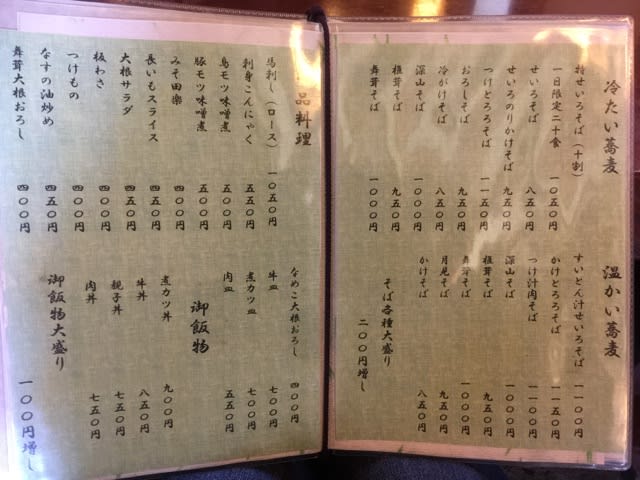 冷たい蕎麦
特せいろそば（十割） 一〇五〇円
一日限定二十食
せいろそば 八五〇円
せいろのりかけそば 九五〇円
つけとろろそば 一一五〇円
おろしそば 九五〇円
冷がけそば 八五〇円
深山そば 一〇〇〇円
椎茸そば 九五〇円
舞茸そば 一〇〇〇円
温かい蕎麦
すいとん汁せいろそば 一一〇〇円
かけとろろそば 一一五〇円
つけ汁肉そば 一一〇〇円
深山そば 一〇〇〇円
椎茸そば 九五〇円
舞茸そば 一〇〇〇円
月見そば 九五〇円
かけそば 八五〇円
そば各種大盛り
二〇〇円増し
品料理
馬刺し（ロース） 一〇五〇円
刺身こんにゃく 五五〇円
鳥モツ味噌煮 五〇〇円
豚モツ味噌煮 五〇〇円
みそ田楽 四〇〇円
長いもスライス 五五〇円
大根サラダ 五五〇円
板わさ 四〇〇円
つけもの 四〇〇円
なすの油炒め 四五〇円
舞茸大根おろし 四〇〇円
なめこ大根おろし 四〇〇円
牛皿 七〇〇円
煮カツ皿 七〇〇円
肉皿 五五〇円
御飯物
煮カツ丼 九〇〇円
牛丼 八五〇円
親子丼 七五〇円
肉丼 七五〇円
御飯物大盛り
一〇〇円増し